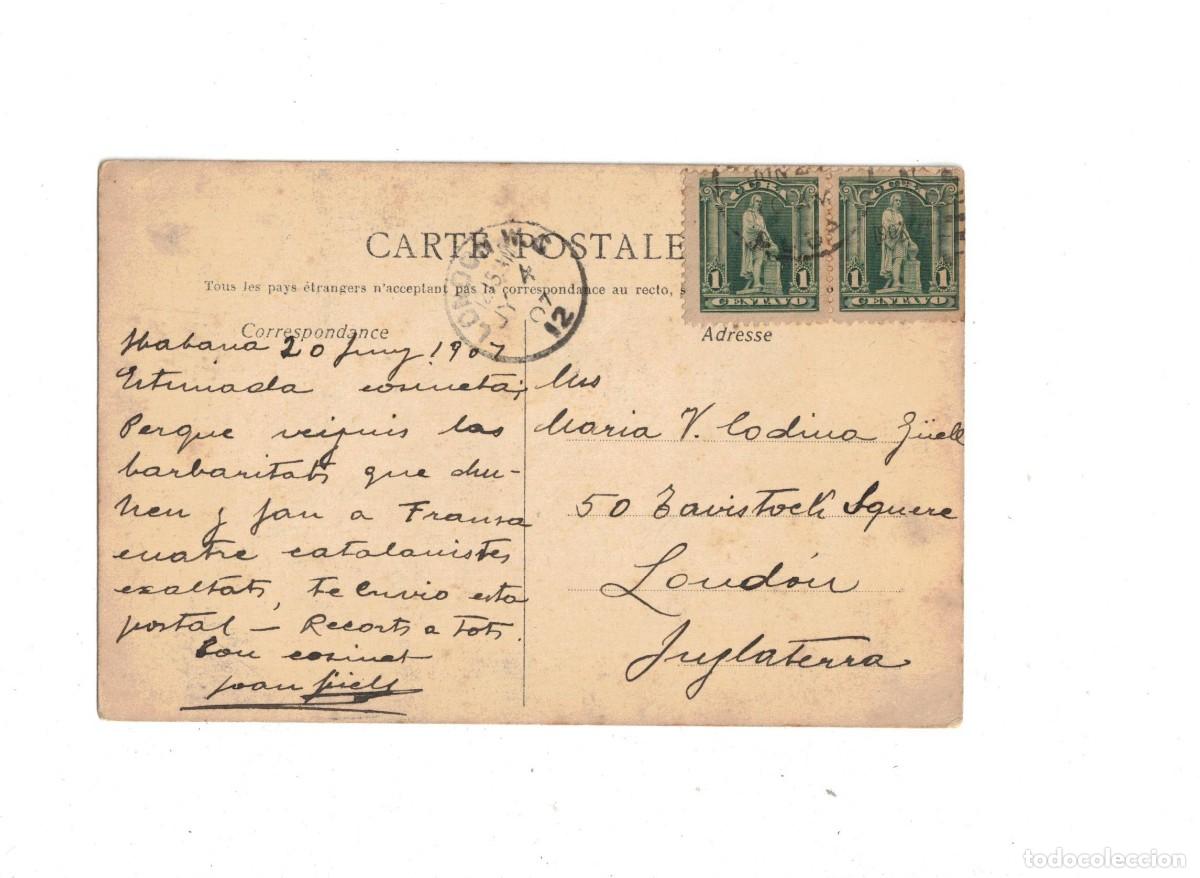 CARTE POSTALE
Tous les pays étrangers n'acceptant pas la correspondance au recto, s
Correspondance
Adresse
CUBA
1 1
CENTAVO
CUBA
1 1
CENTAVO
LONDON W.C
12.15
JY 4
07
12
Habana 20 Juny 1907
Estimada cosineta;
Perque vejuis las
barbaritats que diu-
hen y fan a Fransa
cuatre catalanistes
exaltats, te envio esta
postal — Recorts a tots.
Ton cosinet
Joan Güell
Miss
Maria V. Codina Güell
50 Tavistock Squere
Londón
Inglaterra
todocoleccion